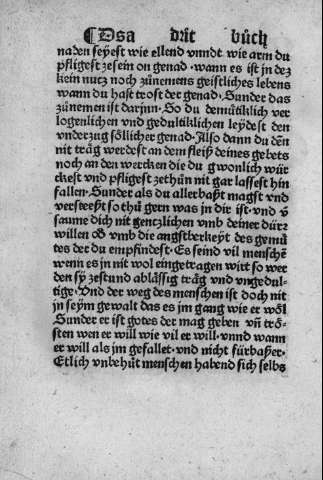 Das drit bůch
naden seyest wie ellend vnndt wie arm du
pfligest ze sein on genad · wann es ist in dez
kein nutz noch zůnemens geistliches lebens
wann du hast trost der genad · Sunder das
zůnemen ist darjnn · So du demůtiklich ver
logenlichen vnd gedultiklichen leydest den
vnderzug söllicher genad · Also dann du dēn
nit träg werdest an dem fleiß deines gebets
noch an den wercken die du gwonlich wür
ckest vnd pfligest ze thůn nit gar lassest hin
fallen · Sunder als du allerbaßt magst vnd
versteest so thů gern was in dir ist · vnd v̈
saume dich nit gentzlichen vmb deiner dürz
willen oð vmb die angstberkeyt des gemů
tes der du empfindest · Es seind vil menschē
wenn es jn nit wol eingetragen wirt so wer
den sy ze stund ablässig träg vnd vngedul-
tige · Vnd der weg des menschen ist doch nit
jn seym gewalt das es jm gang wie er wöl
Sunder er ist gotes der mag geben vn̄ trö-
sten wen er will wie vil er will · vnnd wann
er will als jm gefallet · vnd nicht fürbaßer ·
Etlich vnbehůt menschen habend sich selbs